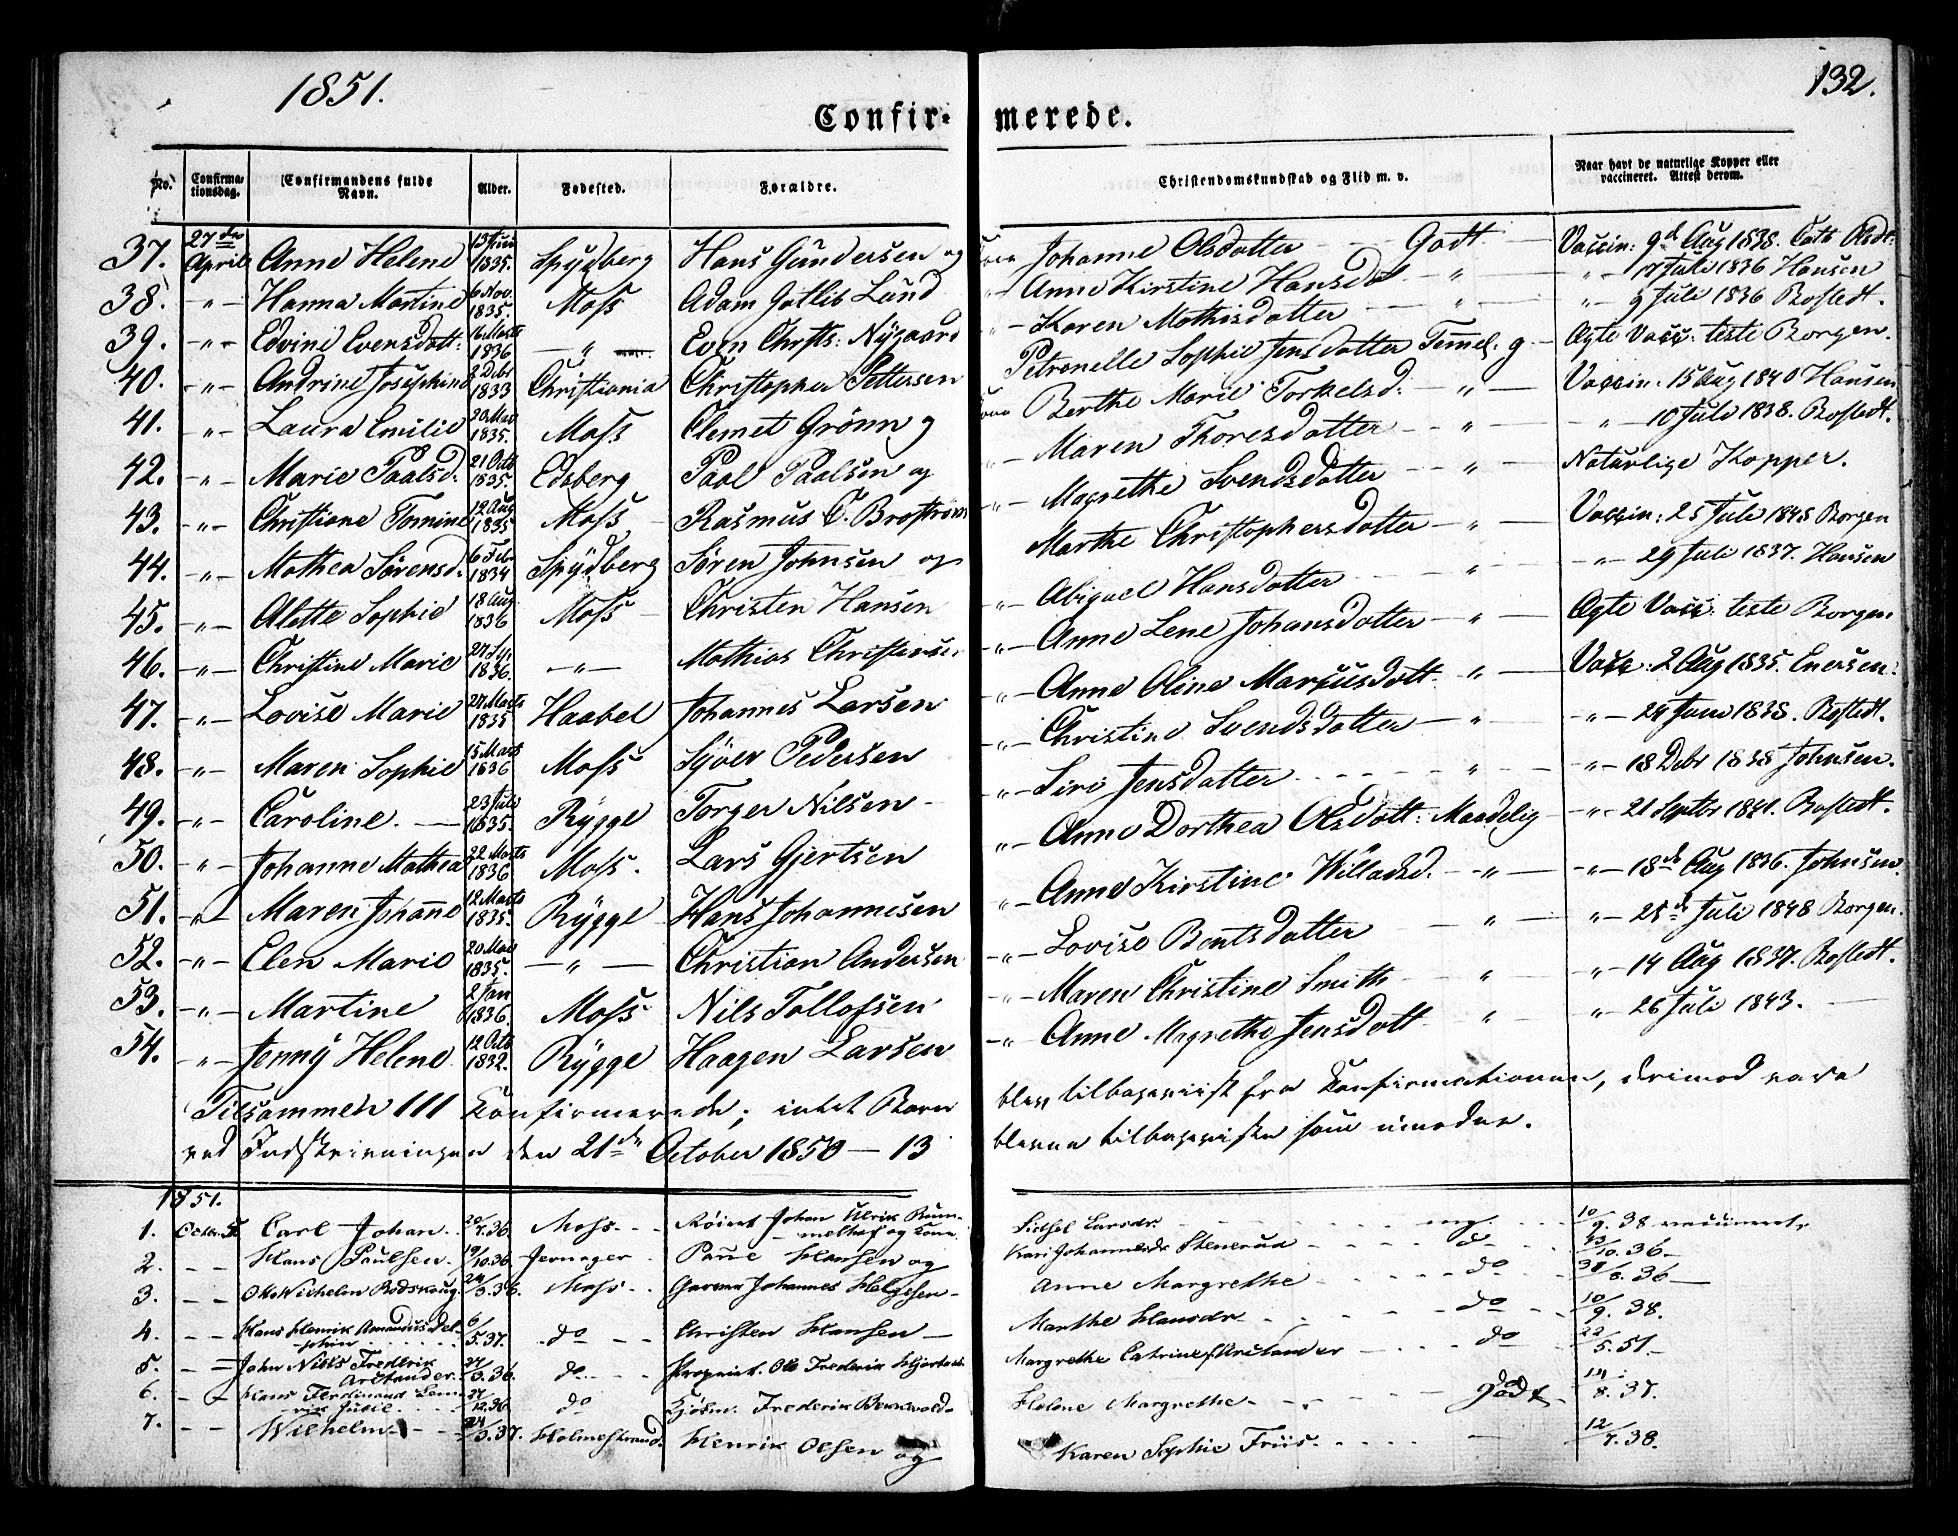 1851.
132.
Confir- merede.
No. Confirmationsdag. Confirmandens fulde Navn. Alder. Fødested. Forældre. Christendomskundskab og Flid m. v. Naar havt de naturlige Kopper eller vaccineret. Attest derom.
37. 27de April Anne Helene 1835. Spydberg Hans Gundersen og Kone Johanne Olsdatter Godt Vaccin: 9d Aug 1838. Cath Olsdt:
38. -"- Hanna Martine 6 Nov. 1835. Moss Adam Gotlib Lund -"- Anne Kirstine Hansdt -"- -"- 17 Juli 1836 Hansen
39. -"- Edvine Evensdatt: 16 Marts 1836 -"- Even Chrsts: Nygaard -"- Karen Mathisdatter -"- -"- 9 Juli 1836 Bostedt.
40. -"- Andrine Josephine 8 Debr 1833 Christiania Christopher Pettersen Petronelle Sophie Jensdatter Temmel. g - Ægte Vacc: teste Borgen.
41. -"- Laura Emilie 20 Mai 1835. Moss Clemet Grønn og Kone Berthe Marie Torkelsd: -"- Vaccin: 15 Aug 1840 Hansen
42. -"- Marie Paalsd: 21 Octb 1835. Edsberg Paal Paalsen og -"- Maren Thoresdatter -"- -"- 10 Juli 1838. Bostedt.
43. -"- Christiane Tomine 12 Aug 1835 Moss Rasmus C. Brostrøm -"- Magrethe Svendsdatter -"- Naturlige Kopper.
44. -"- Mathea Sørensd. 6 Febr 1834 Spydberg Søren Johnsen og Marthe Christophersdatter -"- Vaccin: 25 Juli 1845 Borgen
45. -"- Alette Sophie 18 Aug. 1836 Moss Christen Hansen -"- Abigael Hansdatter -"- -"- 29 Juli 1837. Hansen
46. -"- Christine Marie 1836. -"- Mathias Christensen -"- Anne Lene Johansdatter -"- Ægte Vacc. teste Borgen.
47. -"- Lovise Marie 21 Marts 1835 Haabel Johannes Larsen -"- Anne Oline Marcusdatt. -"- Vacc: 2 Aug 1835. Enersen:
48. -"- Maren Sophie 15 Marts 1836 Moss Syver Pedersen -"- Christine Svendsdatter -"- -"- 29 Juni 1838. Bostedt.
49. -"- Caroline. 23 Juli 1835. Rygge Torger Nilsen -"- Siri Jensdatter -"- -"- 18 Debr 1838 Johnsen.
50. -"- Johanne Mathea 22 Marts 1836 Moss. Lars Gjertsen -"- Anne Dorthea Olsdatt: Maadelig -"- 21 Septbr 1841. Bostedt.
51. -"- Maren Johanne 12 Marts 1835. Rygge Hans Johannesen -"- Anne Kirstine Willadsd. -"- -"- 18de Aug 1836. Johnsen.
52. -"- Elen Marie 20 Mai 1835. -"- Christian Andersen -"- Lovise Bentsdatter -"- -"- 25de Juli 1848 Borgen.
53. -"- Martine 2 Jan 1836. Moss Nils Tollofsen -"- Maren Christine Smith -"- -"- 14 Aug 1837. Bostedt.
54. -"- Jenny Helene 12 Octb 1832. Rygge Haagen Larsen -"- Anne Magrethe Jensdatt -"- -"- 26 Juli 1843.
Tilsammen 111 Konfirmerede; intet Barn blev tilbageviist fra Konfirmationen, derimod vare
ved Indskrivningen den 21de October 1850 - 13 blevne tilbageviste som umodne.
1851.
1. Octbr. 5 Carl Johan 20/7.36. Moss Johan Ulrik Rummelhof og Kone Sidsel Larsdr. mg. 10/9. 38 vaccineret
2. - - Hans Paulsen 19/10.36 Jernager Hansen og Kari Johannesdr Stenerud do 13/10. 36
3. - - Otto Wilhelm Bodskaug 24/3.36. Moss Garver Johannes Helgesen Anne Margrethe do 36
4. - - Hans Henrik Amandus Delphin 6/5.37. do Christen Hansen Marthe Hansdr do 10/9. 38.
5. - - John Niels Frederik Arctander 3.36. do Propriet. Ole Frederik Margrethe Catrine Arctander do 22/5. 51.
6. - - Hans Ferdinand 12.36 do Kjøbm. Frederik Helene Margrethe Godt 14/8. 37.
7. - - Wilhelm 24/3.37. Holmestrand Henrik Olsen og Karen Sophie Friis. 12/7. 38.